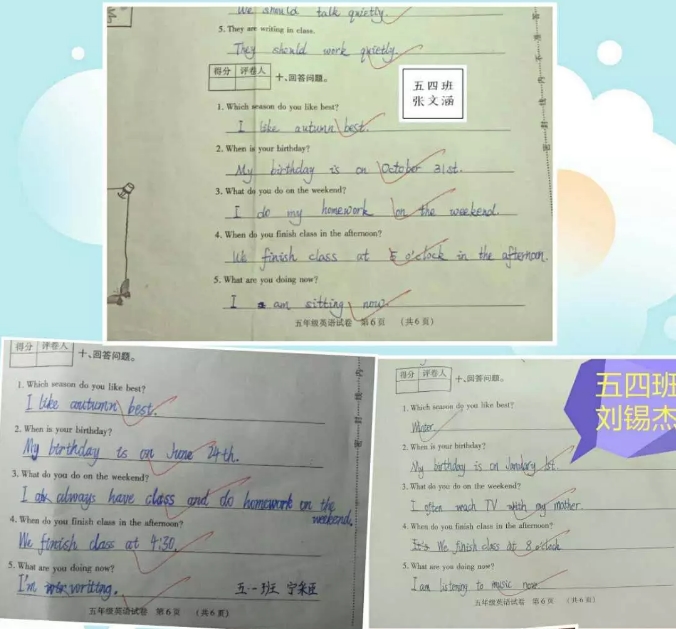 We should talk quietly.
5. They are writing in class.
They should work quietly.
得分 评卷人
十、回答问题。
五四班
张文涵
1. Which season do you like best?
I like autumn best.
2. When is your birthday?
My birthday is on October 31st.
3. What do you do on the weekend?
I do my homework on the weekend.
4. When do you finish class in the afternoon?
We finish class at 5 o'clock in the afternoon.
5. What are you doing now?
I am sitting now.
五年级英语试卷 第6页 (共6页)
得分 评卷人
十、回答问题。
1. Which season do you like best?
I like autumn best.
2. When is your birthday?
My birthday is on June 24th.
3. What do you do on the weekend?
I always have class and do homework on the
weekend.
4. When do you finish class in the afternoon?
We finish class at 4:30.
5. What are you doing now?
I'm writing.
五·一班
五年级英语试卷 第6页 (共6页)
得分 评卷人
十、回答问题。
五四班
刘锡杰
1. Which season do you like best?
Winter.
2. When is your birthday?
My birthday is on January 1st.
3. What do you do on the weekend?
I often wach TV with my mother.
4. When do you finish class in the afternoon?
We finish class at 8 o'clock
5. What are you doing now?
I am listening to music now.
五年级英语试卷 第6页 (共6页)